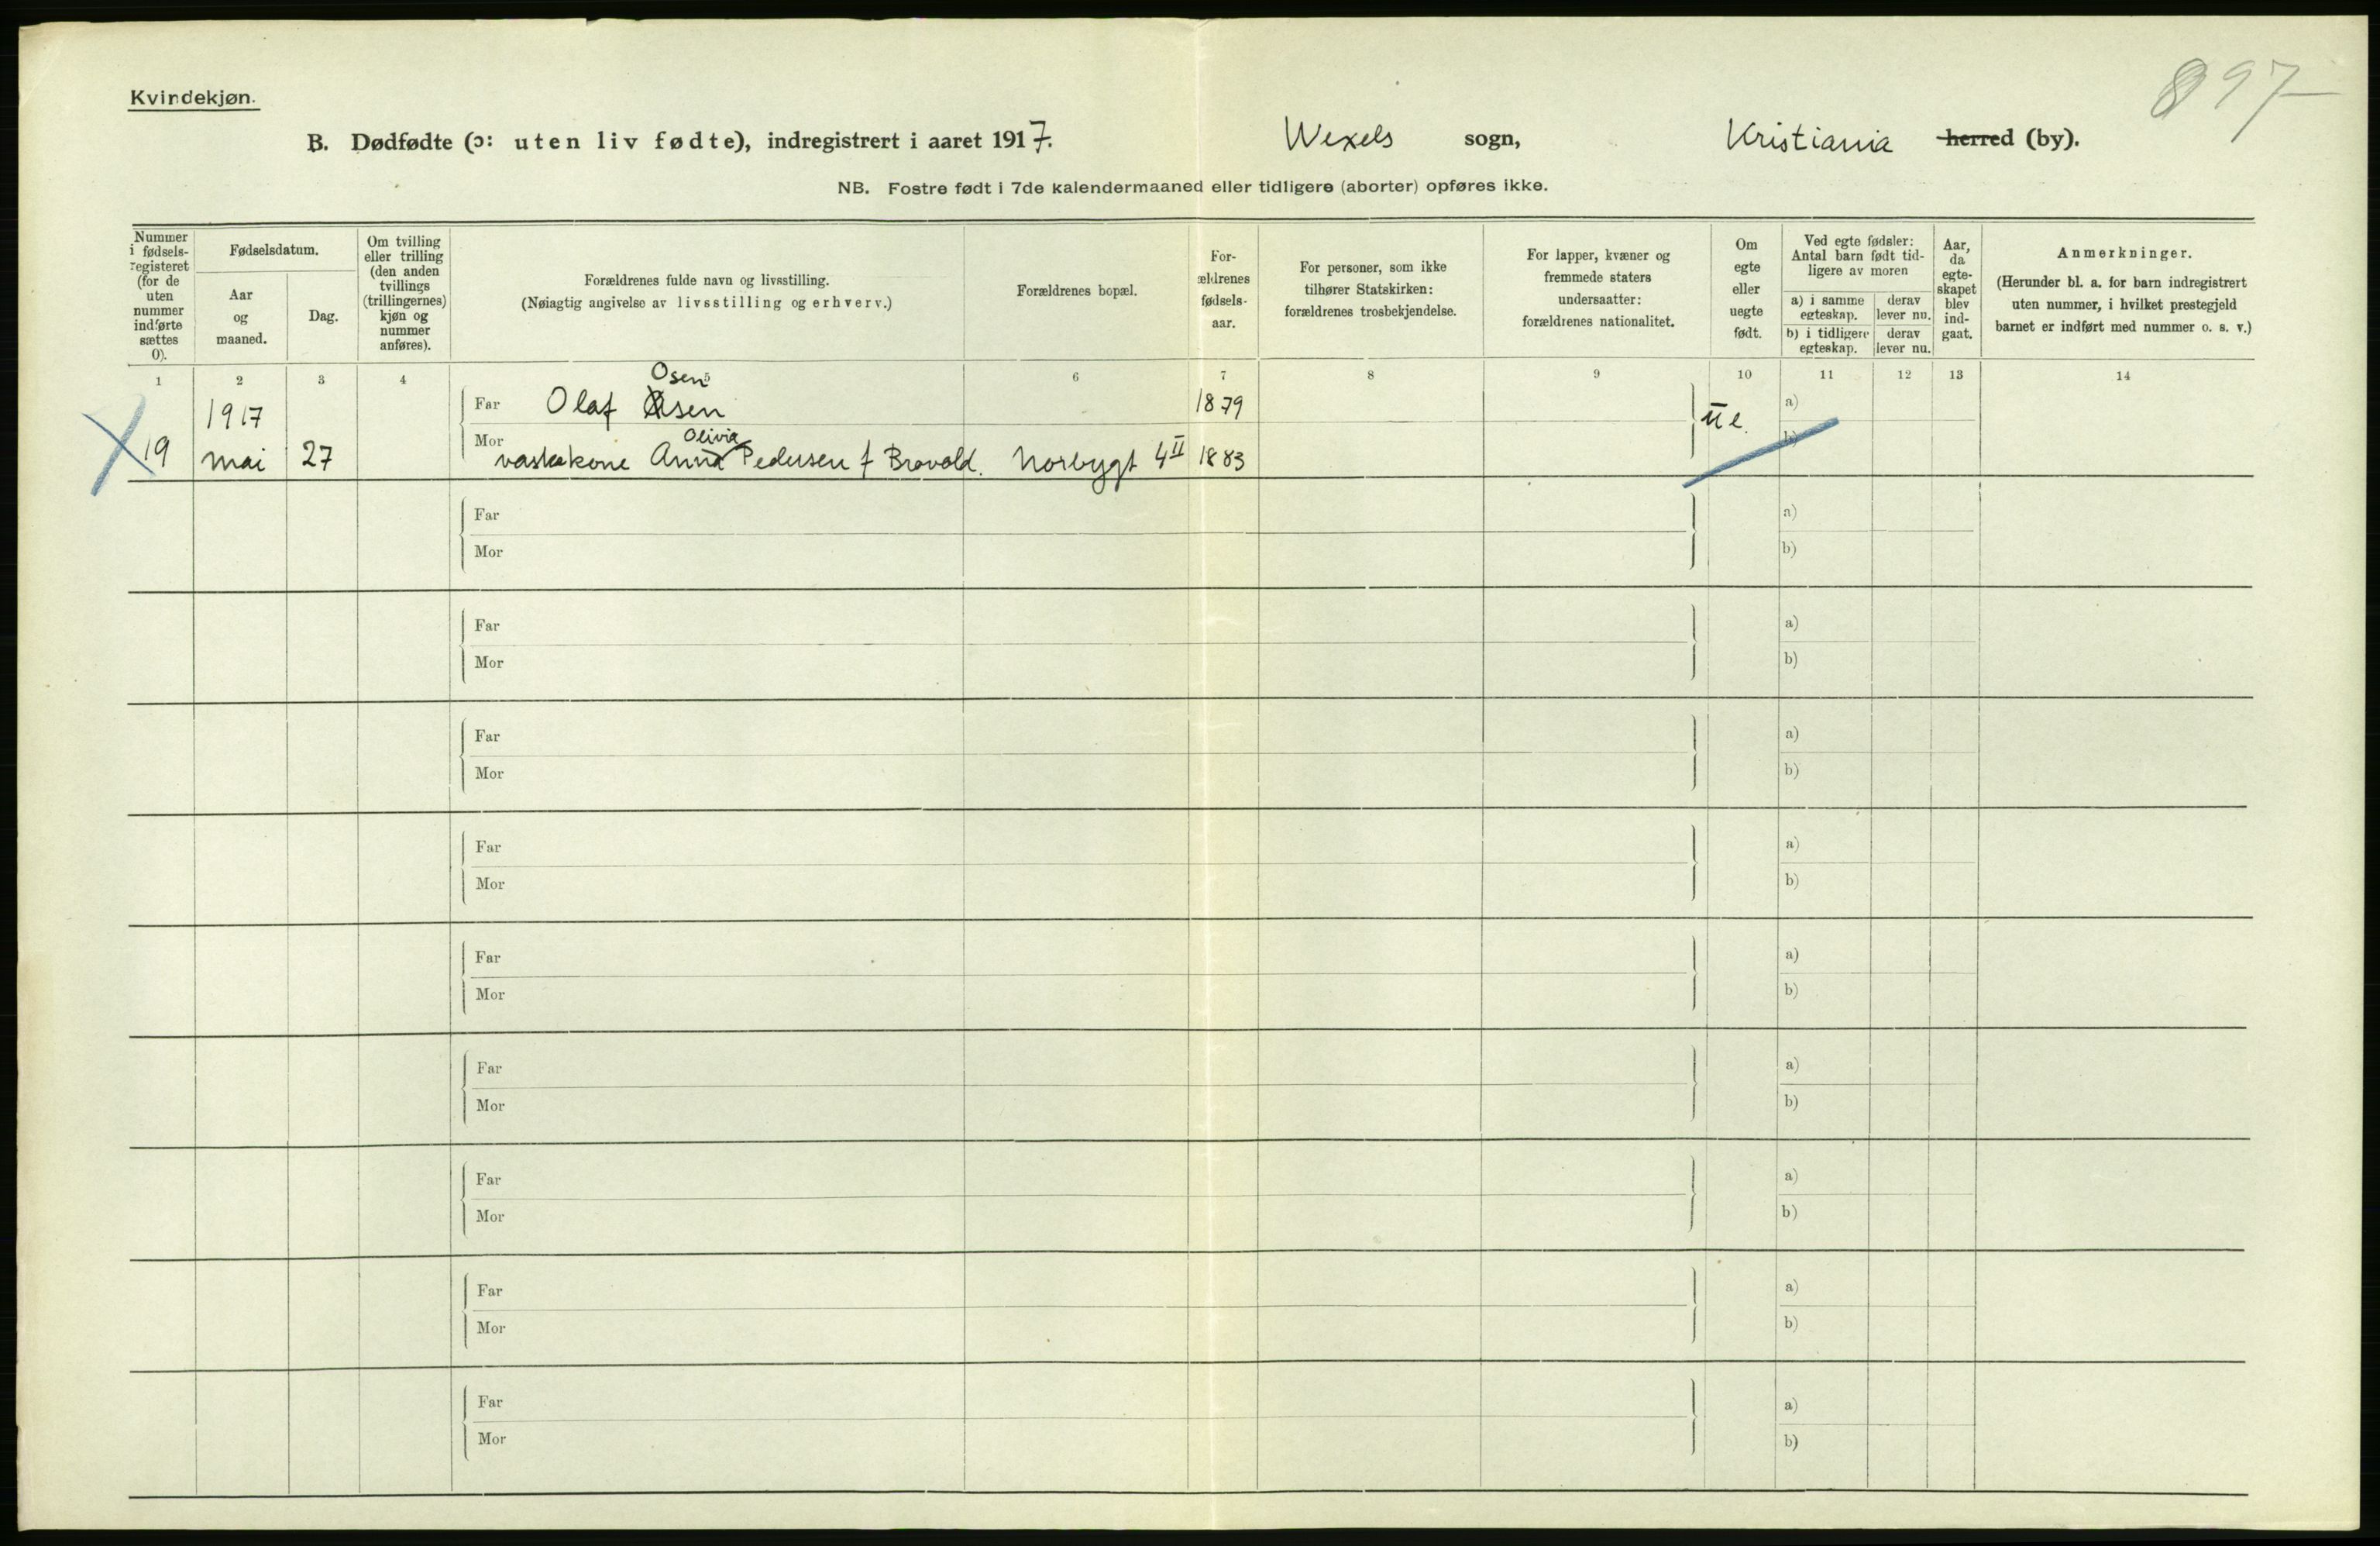 897
Kvindekjøn.
B. Dødfødte (ɔ: uten liv fødte), indregistrert i aaret 1917. Wexels sogn, Kristiania herred (by).
NB. Fostre født i 7de kalendermaaned eller tidligere (aborter) opføres ikke.
Nummer
i fødsels-
registeret
(for de
uten
nummer
indførte
sættes
0).
Fødselsdatum.
Aar
og
maaned.
Dag.
Om tvilling
eller trilling
(den anden
tvillings
(trillingernes)
kjøn og
nummer
anføres).
Forældrenes fulde navn og livsstilling.
(Nøiagtig angivelse av livsstilling og erhverv.)
Forældrenes bopæl.
For-
ældrenes
fødsels-
aar.
For personer, som ikke
tilhører Statskirken:
forældrenes trosbekjendelse.
For lapper, kvæner og
fremmede staters
undersaatter:
forældrenes nationalitet.
Om
egte
eller
uegte
født.
Ved egte fødsler:
Antal barn født tid-
ligere av moren
a) i samme
egteskap.
derav
lever nu.
b) i tidligere
egteskap.
derav
lever nu.
Aar,
da
egte-
skapet
blev
ind-
gaat.
Anmerkninger.
(Herunder bl. a. for barn indregistrert
uten nummer, i hvilket prestegjeld
barnet er indført med nummer o. s. v.)
1 2 3 4 5 6 7 8 9 10 11 12 13 14
Osen
1917 Far Olaf sen 1879 ue. a)
Olivia
19 mai 27 Mor vaskekone Anna Pedersen f Bravold. Norbygt 4 II 1883 b)
Far a)
Mor b)
Far a)
Mor b)
Far a)
Mor b)
Far a)
Mor b)
Far a)
Mor b)
Far a)
Mor b)
Far a)
Mor b)
Far a)
Mor b)
Far a)
Mor b)